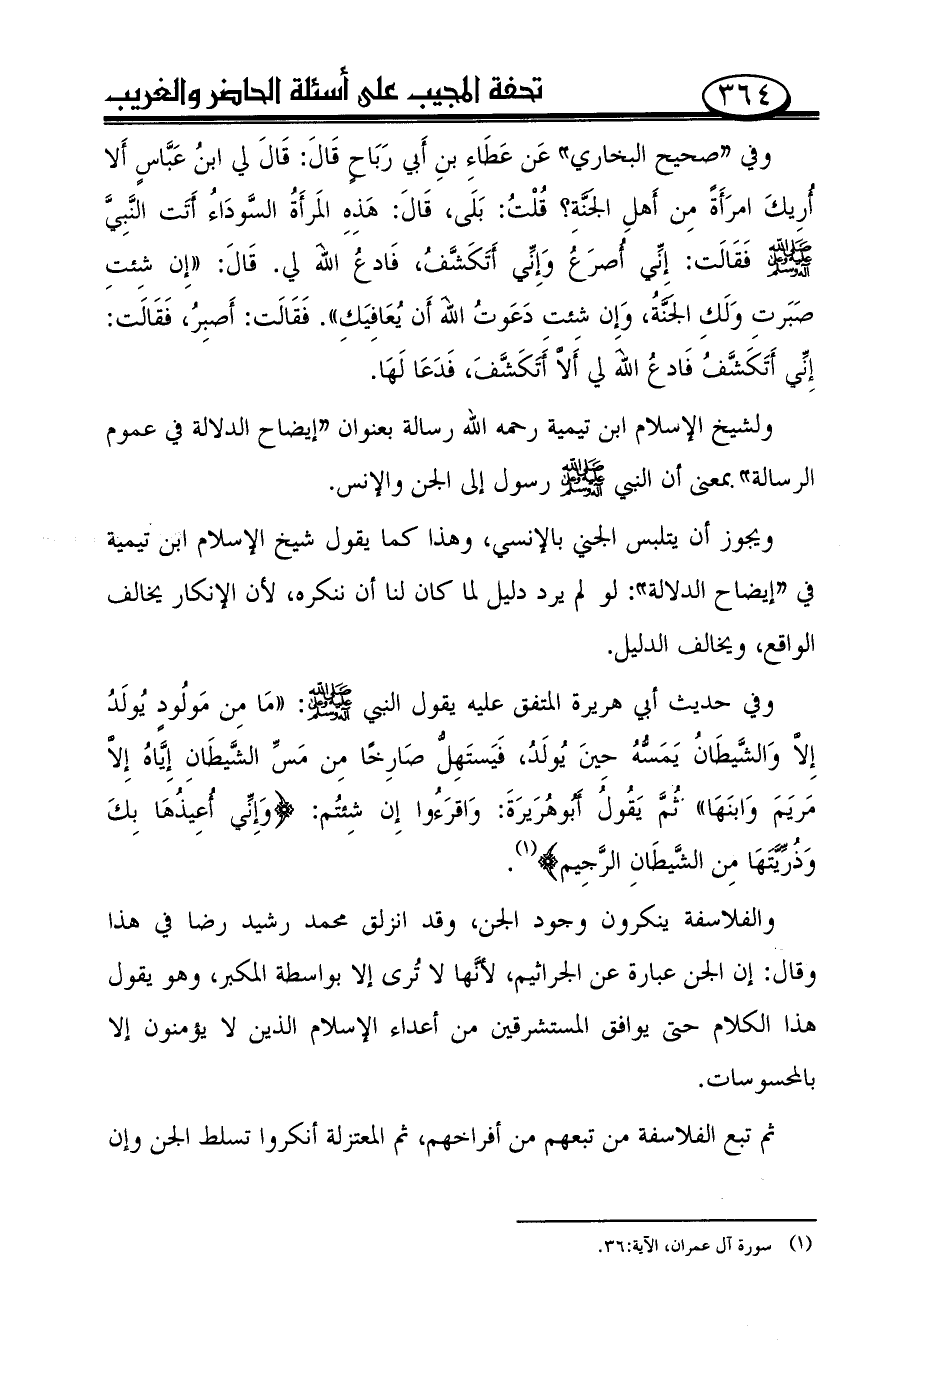 ٣٦٤ تحفة المجيب على أسئلة الحاضر والغريب
وفي «صحيح البخاري» عَن عَطَاءِ بنِ أَبي رَبَاحٍ قَالَ: قَالَ لي ابنُ عَبَّاسٍ أَلا
أُرِيكَ امرَأَةً مِن أَهلِ الجَنَّةِ؟ قُلتُ: بَلَى، قَالَ: هَذِهِ المَرأَةُ السَّودَاءُ أَتَت النَّبِيَّ
ﷺ فَقَالَت: إِنِّي أُصرَعُ وَإِنِّي أَتَكَشَّفُ، فَادعُ اللهَ لي. قَالَ: «إِن شئتِ
صَبَرتِ وَلَكِ الجَنَّةُ، وَإِن شئتِ دَعَوتُ اللهَ أَن يُعَافِيَكِ». فَقَالَت: أَصبِرُ، فَقَالَت:
إِنِّي أَتَكَشَّفُ فَادعُ اللهَ لي أَلاَّ أَتَكَشَّفَ، فَدَعَا لَهَا.
ولشيخ الإسلام ابن تيمية رحمه الله رسالة بعنوان «إيضاح الدلالة في عموم
الرسالة» بمعنى أن النبي ﷺ رسول إلى الجن والإنس.
ويجوز أن يتلبس الجني بالإنسي، وهذا كما يقول شيخ الإسلام ابن تيمية
في «إيضاح الدلالة»: لو لم يرد دليل لما كان لنا أن ننكره، لأن الإنكار يخالف
الواقع، ويخالف الدليل.
وفي حديث أبي هريرة المتفق عليه يقول النبي ﷺ: «مَا مِن مَولُودٍ يُولَدُ
إلاَّ وَالشَّيطَانُ يَمَسُّهُ حِينَ يُولَدُ، فَيَستَهِلُّ صَارِخًا مِن مَسِّ الشَّيطَانِ إِيَّاهُ إِلاَّ
مَريَمَ وَابنَهَا» ثُمَّ يَقُولُ أَبُوهُرَيرَةَ: وَاقرَءُوا إِن شئتُم: ﴿وَإِنِّي أُعِيذُهَا بِكَ
وَذُرِّيَّتَهَا مِن الشَّيطَانِ الرَّجِيم﴾(١).
والفلاسفة ينكرون وجود الجن، وقد انزلق محمد رشيد رضا في هذا
وقال: إن الجن عبارة عن الجراثيم، لأنَّها لا تُرى إلا بواسطة المكبر، وهو يقول
هذا الكلام حتى يوافق المستشرقين من أعداء الإسلام الذين لا يؤمنون إلا
بالمحسوسات.
ثم تبع الفلاسفة من تبعهم من أفراخهم، ثم المعتزلة أنكروا تسلط الجن وإن
(١) سورة آل عمران، الآية:٣٦.